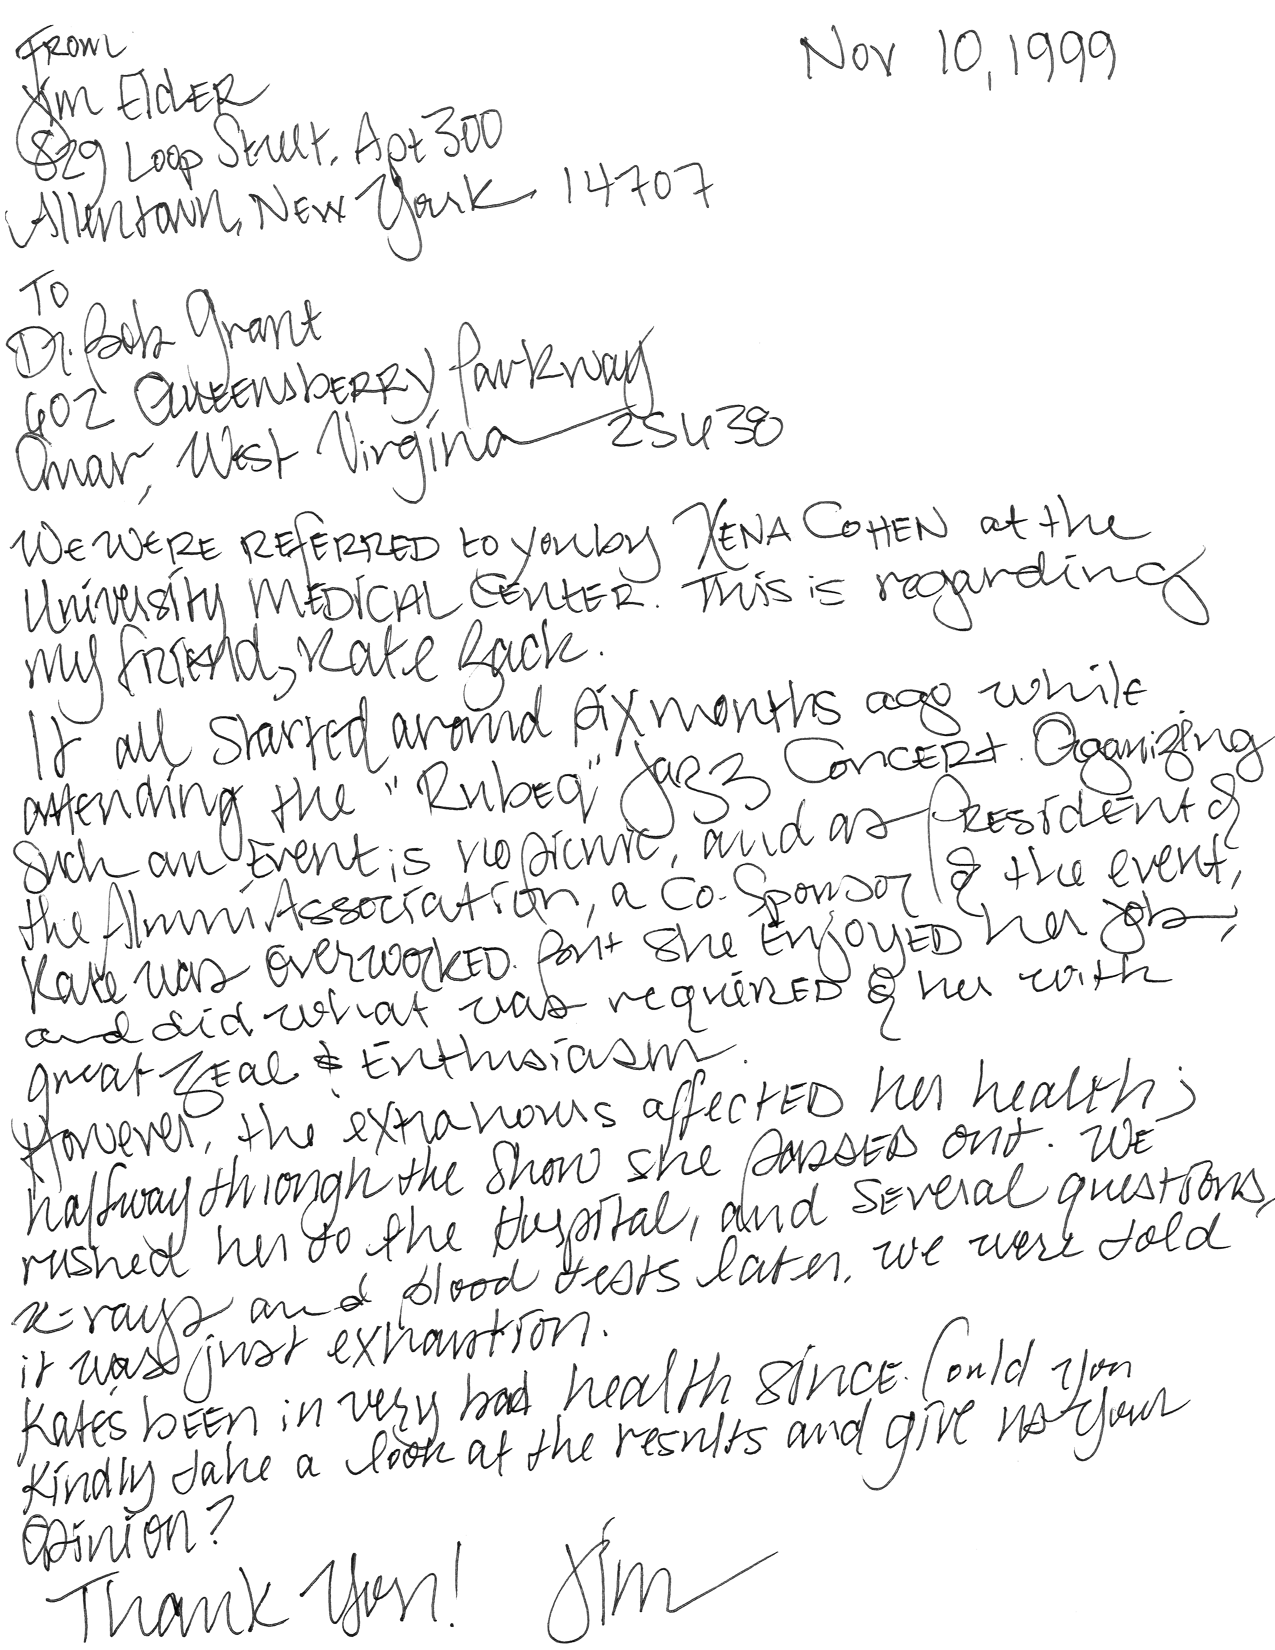 From
Nov 10, 1999
Jim Elder
829 Loop Street, Apt 300
Allentown, New York 14707
To
Dr. Bob Grant
602 Queensberry Parkway
Omar, West Virginia 25638
We were referred to you by Xena Cohen at the
University Medical Center. This is regarding
my friend, Kate Zack.
It all started around six months ago while
attending the "Rubeq" Jazz Concert. Organizing
such an event is no picnic, and as President of
the Alumni Association, a Co-Sponsor of the event,
Kate was overworked. But she enjoyed her job,
and did what was required of her with
great zeal & enthusiasm.
However, the extra hours affected her health;
halfway through the show she passed out. We
rushed her to the hospital, and several questions,
x-rays and blood tests later, we were told
it was just exhaustion.
Kate's been in very bad health since. Could you
kindly take a look at the results and give us your
opinion?
Thank You! Jim